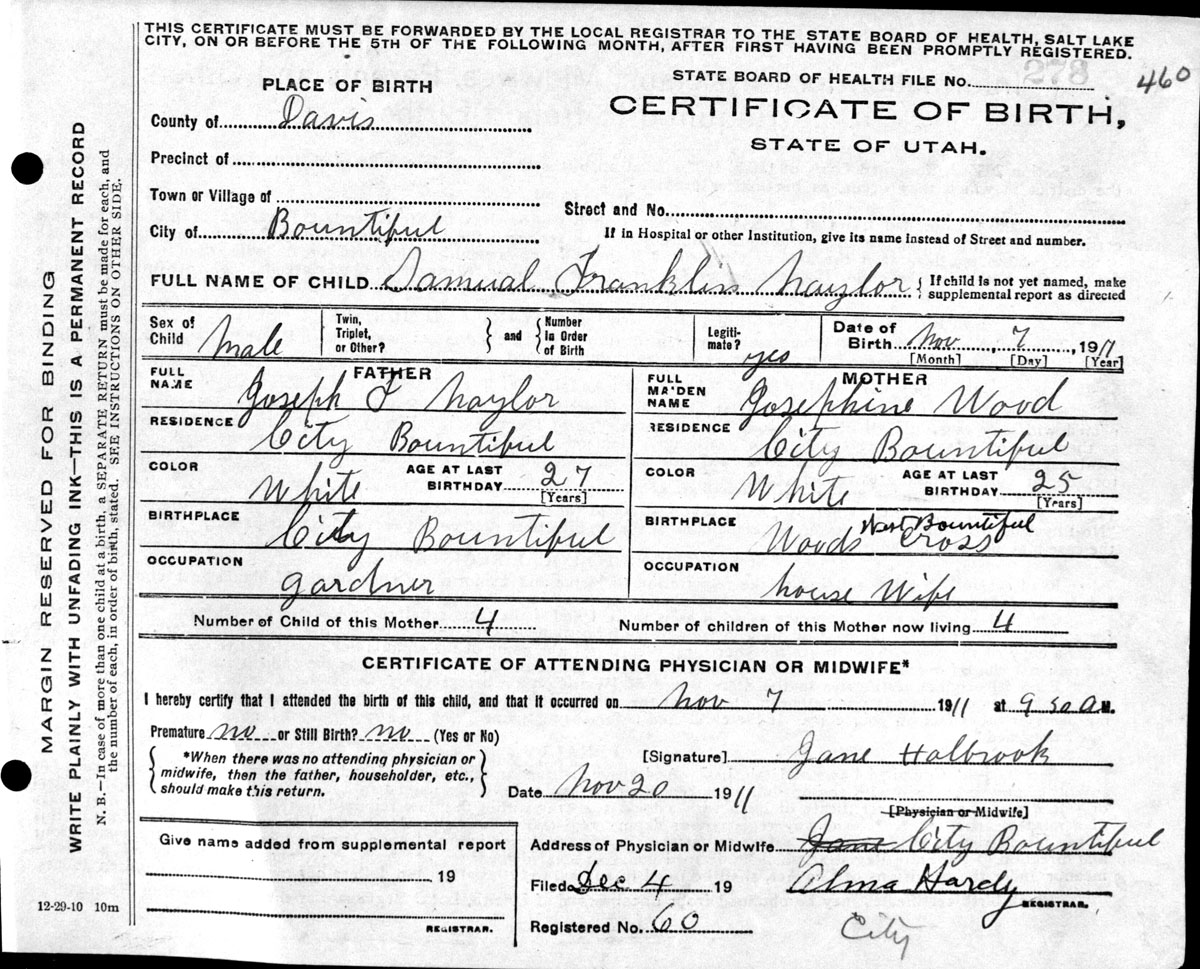 THIS CERTIFICATE MUST BE FORWARDED BY THE LOCAL REGISTRAR TO THE STATE BOARD OF HEALTH, SALT LAKE
CITY, ON OR BEFORE THE 5TH OF THE FOLLOWING MONTH, AFTER FIRST HAVING BEEN PROMPTLY REGISTERED.
STATE BOARD OF HEALTH FILE No. 278 460
PLACE OF BIRTH
CERTIFICATE OF BIRTH,
STATE OF UTAH.
County of Davis
Precinct of
Town or Village of
Street and No.
City of Bountiful
If in Hospital or other Institution, give its name instead of Street and number.
FULL NAME OF CHILD Samual Franklin Naylor { If child is not yet named, make
supplemental report as directed
Sex of Child Male
Twin, Triplet, or Other? } and { Number In Order of Birth
Legitimate? yes
Date of Birth Nov 7, 1911
[Month] [Day] [Year]
FATHER
FULL NAME Joseph F Naylor
RESIDENCE City Bountiful
COLOR White AGE AT LAST BIRTHDAY 27
[Years]
BIRTHPLACE City Bountiful
OCCUPATION gardner
MOTHER
FULL MAIDEN NAME Josephine Wood
RESIDENCE City Bountiful
COLOR White AGE AT LAST BIRTHDAY 25
[Years]
West Bountiful
BIRTHPLACE Woods Cross
OCCUPATION house Wife
Number of Child of this Mother 4 Number of children of this Mother now living 4
CERTIFICATE OF ATTENDING PHYSICIAN OR MIDWIFE*
I hereby certify that I attended the birth of this child, and that it occurred on Nov 7 1911 at 9 30 A M.
Premature no or Still Birth? no (Yes or No)
{ *When there was no attending physician or
midwife, then the father, householder, etc.,
should make this return. }
[Signature] Jane Holbrook
Date Nov 20 1911
[Physician or Midwife]
Address of Physician or Midwife Jane City Bountiful
Filed Dec 4 19 Alma Hardy
REGISTRAR.
Registered No. 60 City
Give name added from supplemental report
19
REGISTRAR.
MARGIN RESERVED FOR BINDING
WRITE PLAINLY WITH UNFADING INK—THIS IS A PERMANENT RECORD
N. B.—In case of more than one child at a birth, a SEPARATE RETURN must be made for each, and
the number of each, in order of birth, stated. SEE INSTRUCTIONS ON OTHER SIDE.
12-29-10 10m